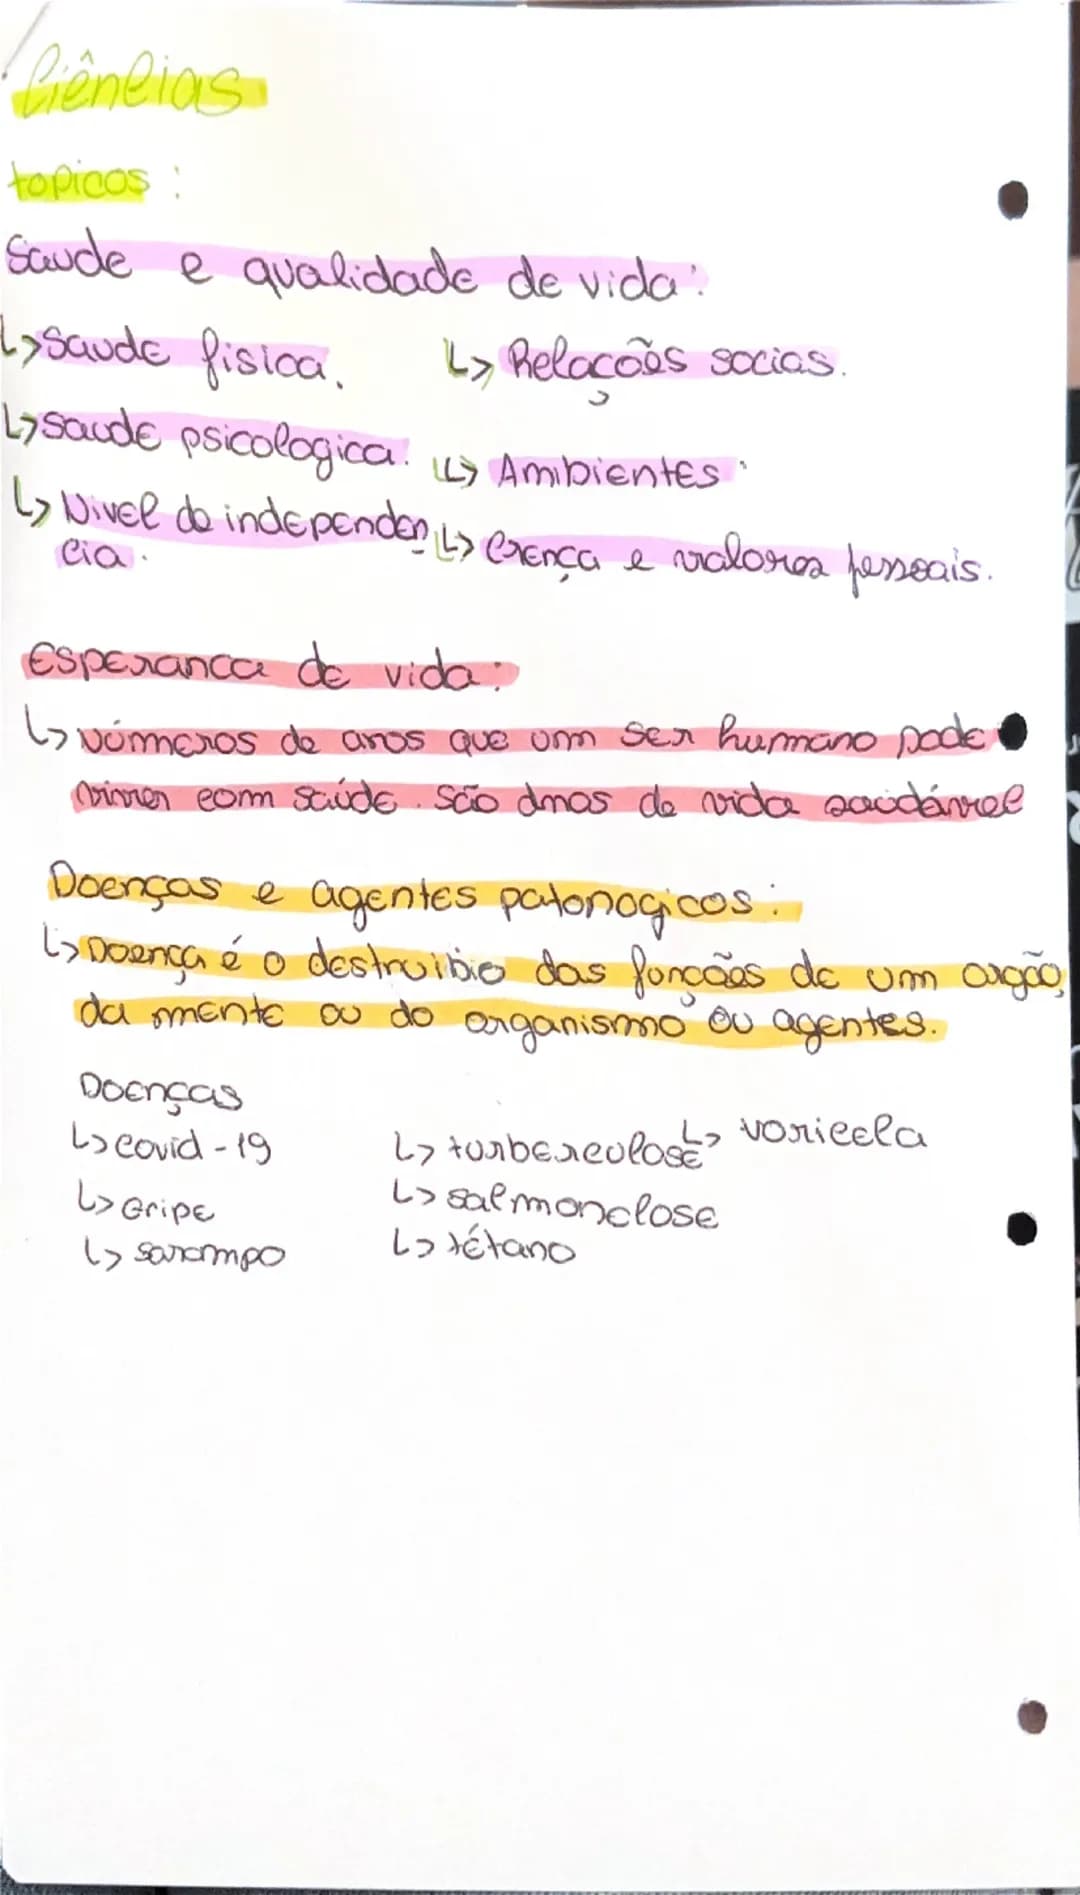 Ciências
topicos :
Saude e qualidade de vida:
↳ Saude fisica.
↳ Saude psicologica.
↳ Nivel de independen
cia.
↳ Relações socias.
↳ Ambientes.
↳ Crença e valores pessoais.
Esperanca de vida:
↳ Números de anos que um ser humano pode
viver com saúde. São dmos de vida saudável
Doenças e agentes patonogicos:
↳ Doença é o destruibio das funções de um orgão,
da mente ou do organismo ou agentes.
Doenças
↳ covid-19
↳ Gripe
↳ sarampo
↳ turberculose
↳ salmonelose
↳ tétano
↳ varicela